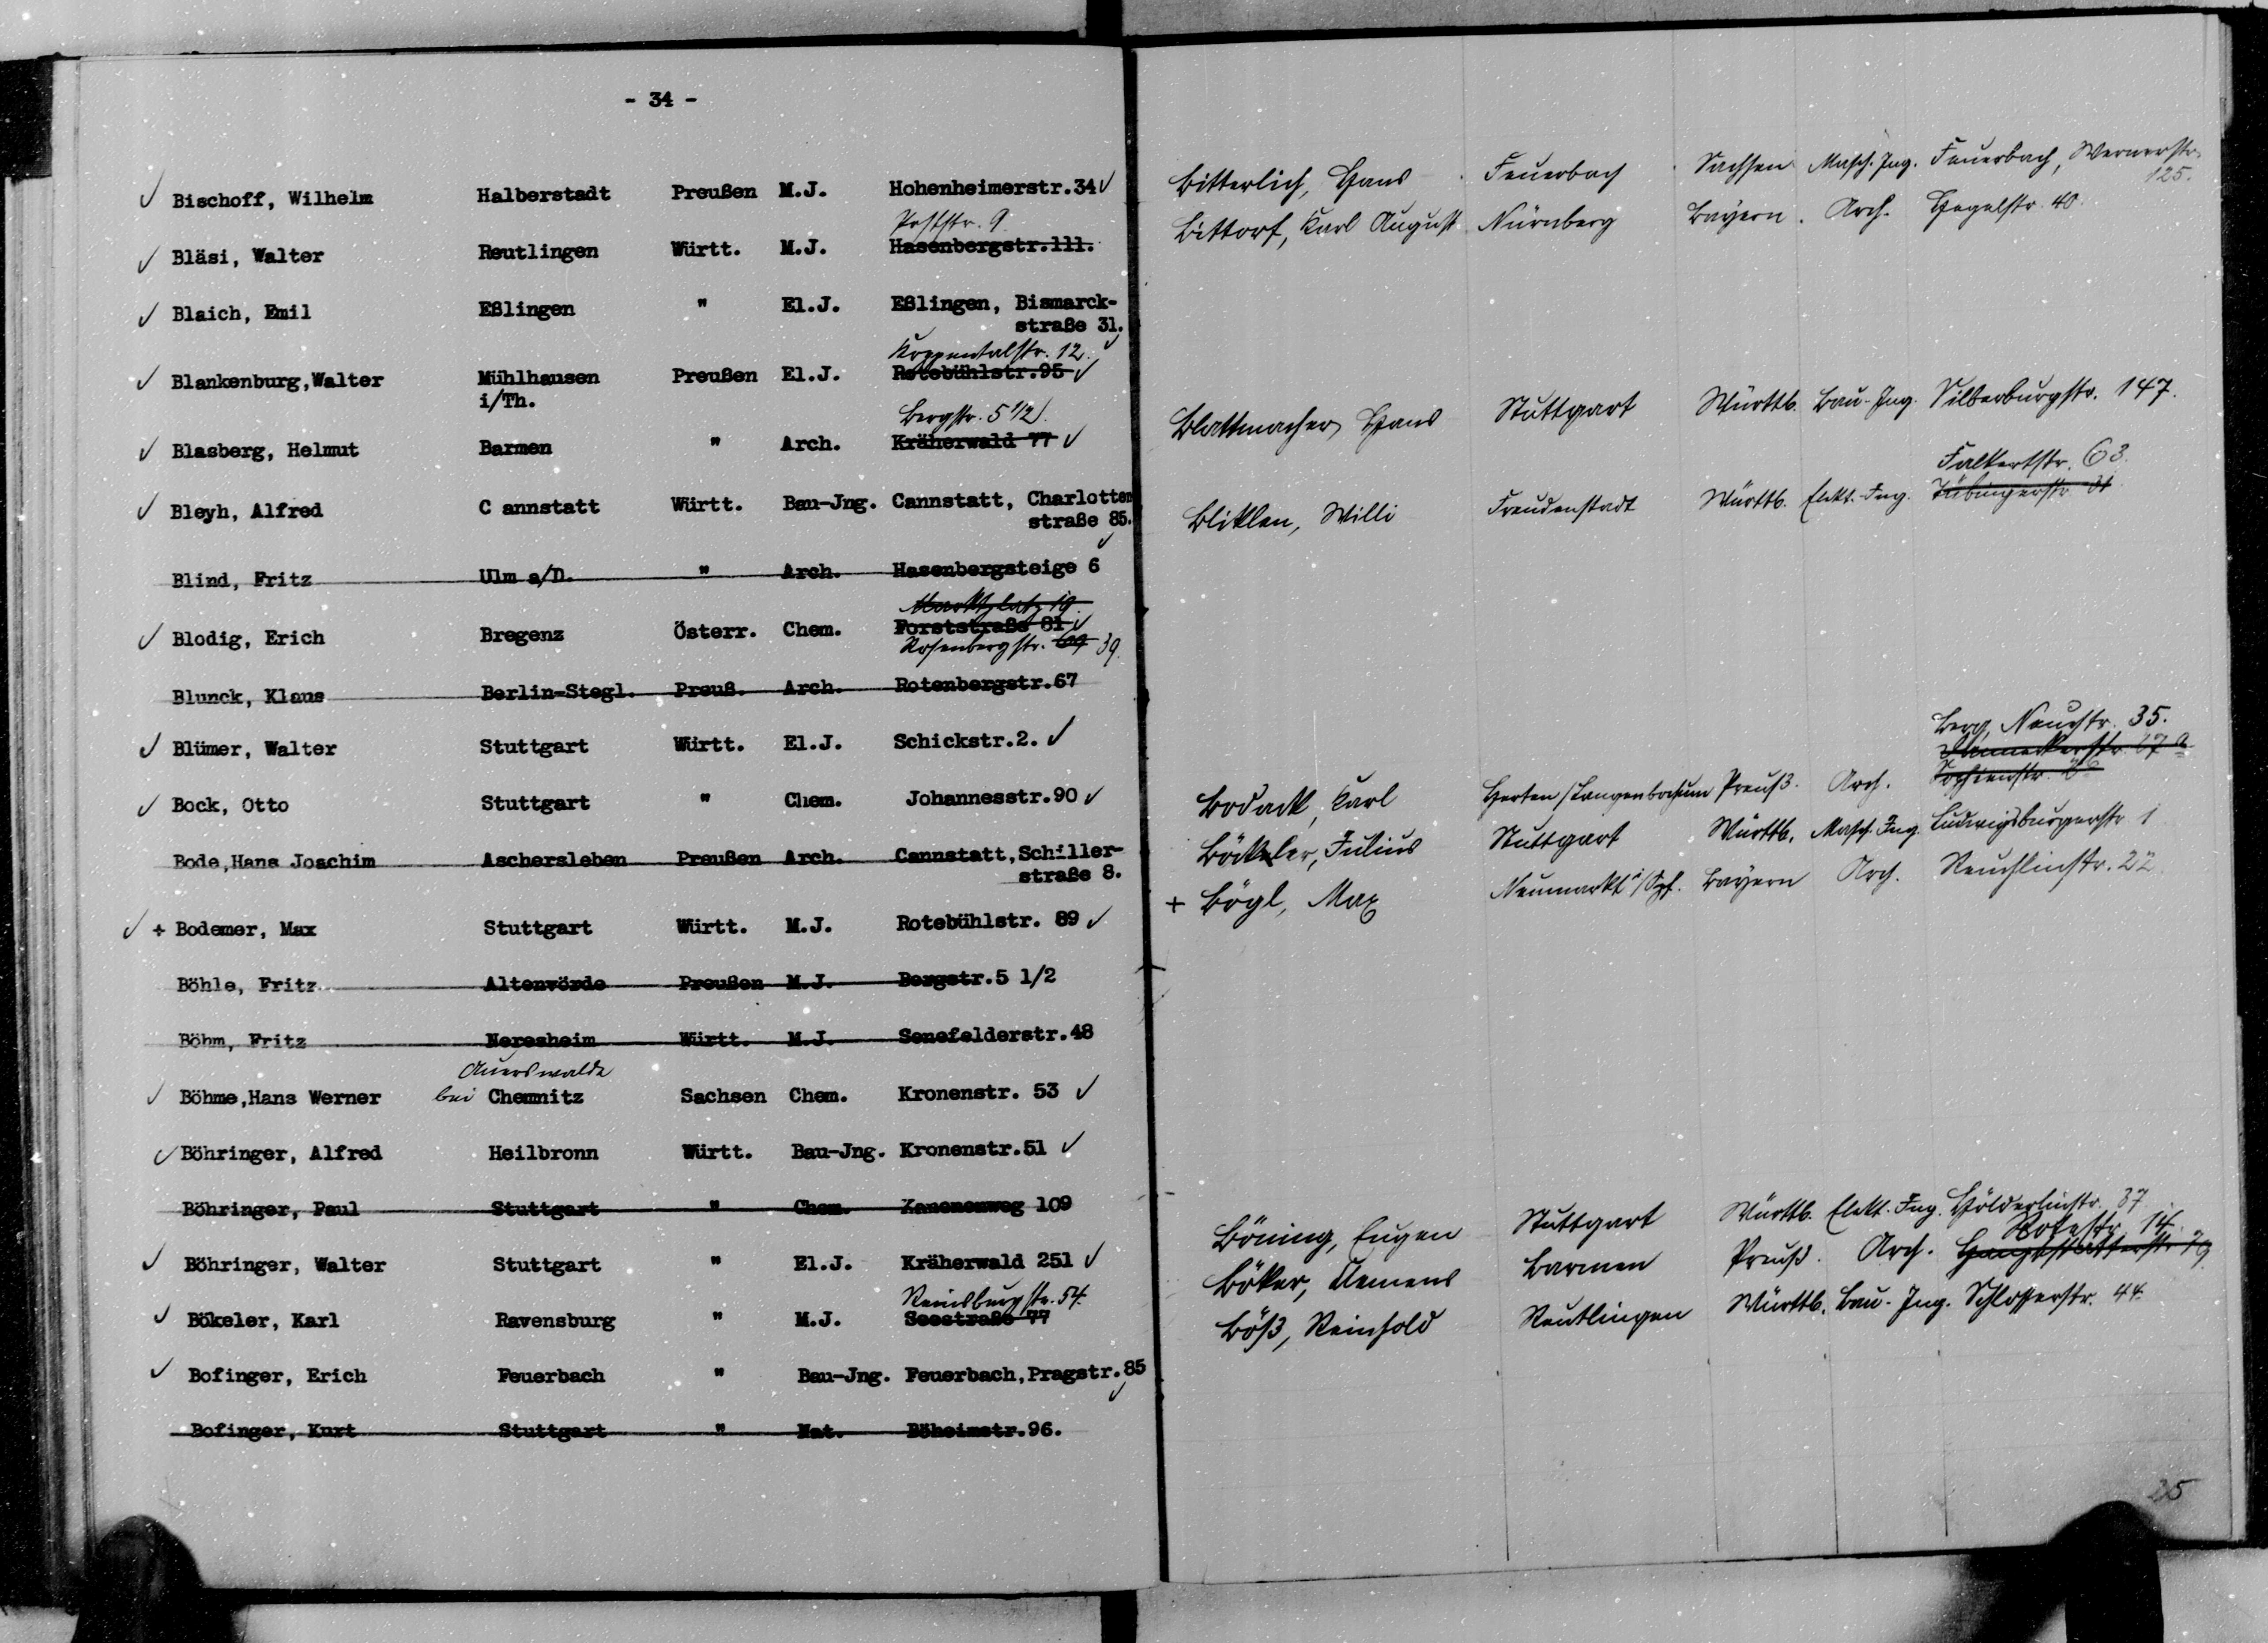 - 34 -
✓ Bischoff, Wilhelm Halberstadt Preußen M.J. Hohenheimerstr.34 ✓
Poststr. 9.
✓ Bläsi, Walter Reutlingen Württ. M.J. Hasenbergstr.111.
✓ Blaich, Emil Eßlingen " El.J. Eßlingen, Bismarck-
straße 31. ✓
Koppentalstr. 12.
✓ Blankenburg,Walter Mühlhausen Preußen El.J. Rotebühlstr.95 ✓
i/Th.
Bergstr. 5 1/2
✓ Blasberg, Helmut Barmen " Arch. Kräherwald 77 ✓
✓ Bleyh, Alfred C annstatt Württ. Bau-Jng. Cannstatt, Charlotten
straße 85. ✓
Blind, Fritz Ulm a/D. " Arch. Hasenbergsteige 6
Marktplatz 19.
✓ Blodig, Erich Bregenz Österr. Chem. Forststraße 81 ✓
Rosenbergstr. 69 39.
Blunck, Klaus Berlin-Stegl. Preuß. Arch. Rotenbergstr.67
✓ Blümer, Walter Stuttgart Württ. El.J. Schickstr.2. ✓
✓ Bock, Otto Stuttgart " Chem. Johannesstr.90 ✓
Bode,Hans Joachim Aschersleben Preußen Arch. Cannstatt,Schiller-
straße 8.
✓ + Bodemer, Max Stuttgart Württ. M.J. Rotebühlstr. 89 ✓
Böhle, Fritz Altenvörde Preußen M.J. Bergstr.5 1/2
Böhm, Fritz Neresheim Württ. M.J. Senefelderstr.48
Auerswalde
✓ Böhme,Hans Werner bei Chemnitz Sachsen Chem. Kronenstr. 53 ✓
✓ Böhringer, Alfred Heilbronn Württ. Bau-Jng. Kronenstr.51 ✓
Böhringer, Paul Stuttgart " Chem. Kanonenweg 109
✓ Böhringer, Walter Stuttgart " El.J. Kräherwald 251 ✓
Reinsburgstr. 54.
✓ Bökeler, Karl Ravensburg " M.J. Seestraße 77
✓ Bofinger, Erich Feuerbach " Bau-Jng. Feuerbach,Pragstr.85 ✓
Bofinger, Kurt Stuttgart " Nat. Böheimstr.96.
Bitterlich, Hans Feuerbach Sachsen Masch. Ing. Feuerbach, Wernerstr.
125.
Bittorf, Karl August Nürnberg Bayern. Arch. Hegelstr. 40.
Blattmacher Hans Stuttgart Württb. Bau-Ing. Silberburgstr. 147.
Falkertstr. 63.
Bliklen, Willi Freudenstadt Württb. Elekt.-Ing. Tübingerstr.
Berg, Neuestr. 35.
Danneckerstr. 27 a
Sophienstr.
Bodack, Karl Herten/Langenbochum Preuß. Arch.
Böckeler, Julius Stuttgart Württb. Masch. Ing. Ludwigsburgerstr. 1
+ Bögl, Max Neumarkt i/Opf. Bayern Arch. Reuchlinstr. 22.
Böning, Eugen Stuttgart Württb. Elekt. Ing. Hölderlinstr. 37.
Rotestr. 14.
Böker, Clemens Barmen Preuß. Arch. Hauptstätterstr. 79
Böß, Reinhold Reutlingen Württb. Bau-Ing. Schlosserstr. 44.